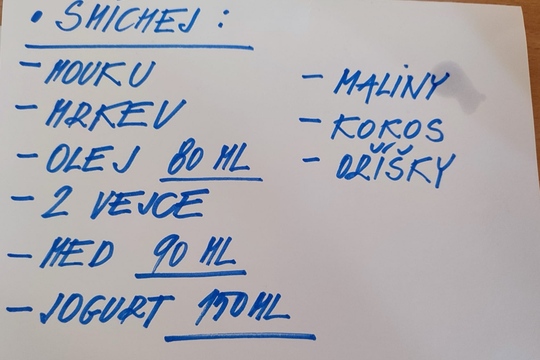 • SMÍCHEJ :
- MOUKU
- MRKEV
- OLEJ 80 ML
- 2 VEJCE
- MED 90 ML
- JOGURT 150 ML
- MALINY
- KOKOS
- OŘÍŠKY